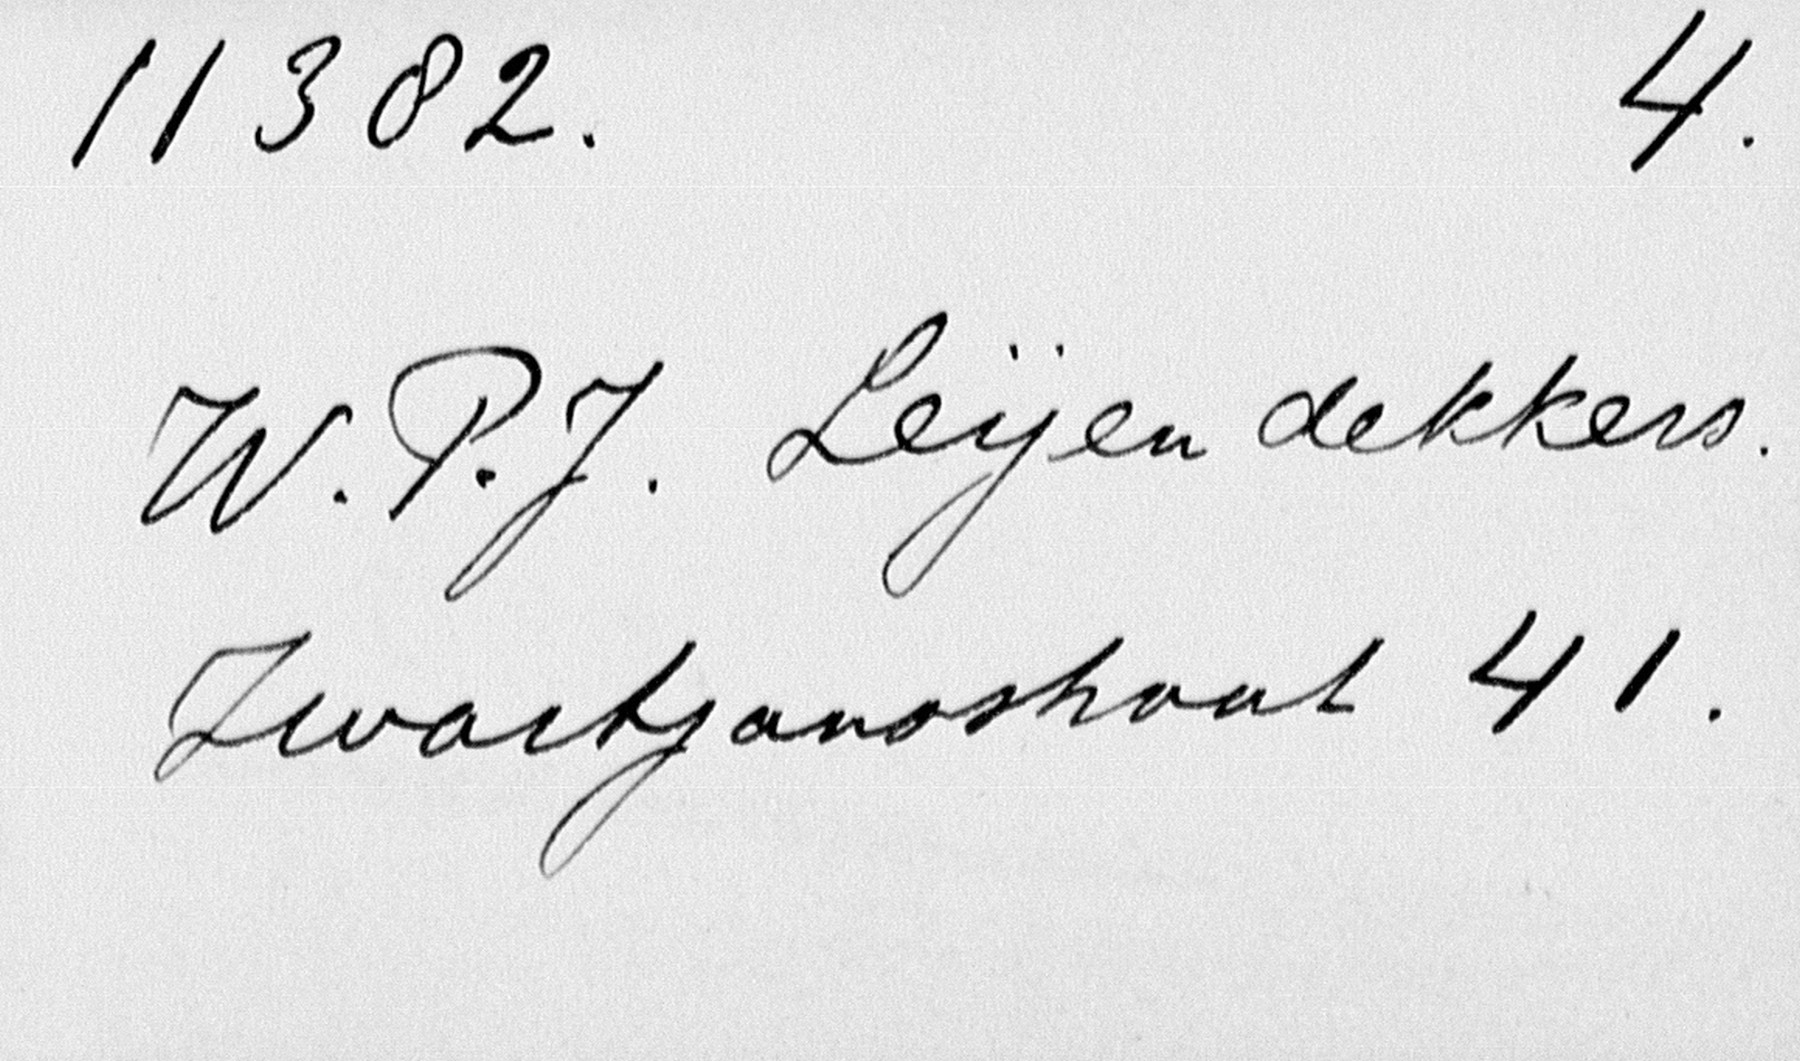 11382. 4.
W. P. J. Leijendekkers.
Zwartjanstraat 41.